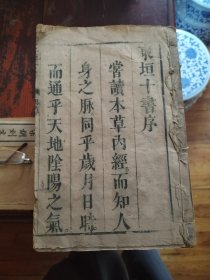 東垣十書序
嘗讀本草內經而知人
身之脉同乎歲月日時
而通乎天地陰陽之氣